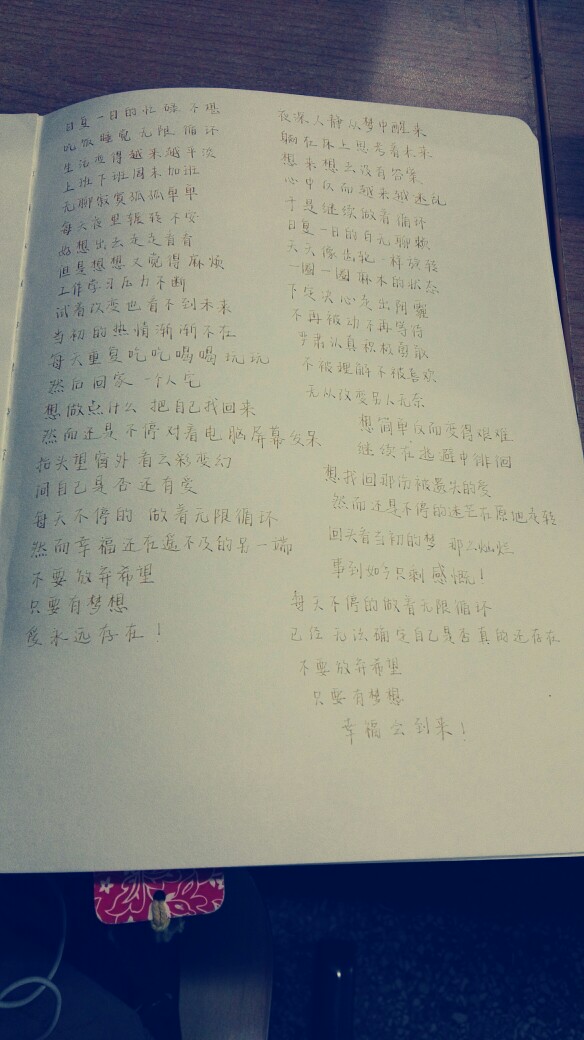 日复一日的忙碌不堪
吃饭睡觉无限循环
生活变得越来越平淡
上班下班周末加班
无聊寂寞孤孤单单
每天夜里辗转不安
好想出去走走看看
但是想想又觉得麻烦
工作学习压力不断
试着改变也看不到未来
当初的热情渐渐不在
每天重复吃吃喝喝玩玩
然后回家一个人宅
想做点什么 把自己找回来
然而还是不停对着电脑屏幕发呆
抬头望窗外看云彩变幻
问自己是否还有爱
每天不停的 做着无限循环
然而幸福还在遥不及的另一端
不要放弃希望
只要有梦想
爱永远存在！
夜深人静从梦中醒来
躺在床上思考着未来
想来想去没有答案
心中反而越来越迷乱
于是继续做着循环
日复一日的百无聊赖
天天像齿轮一样旋转
一圈一圈麻木的状态
下定决心走出阴霾
不再被动不再等待
严肃认真积极勇敢
不被理解不被喜欢
无从改变另人无奈
想简单反而变得艰难
继续在逃避中徘徊
想找回那份被遗失的爱
然而还是不停的迷茫在原地旋转
回头看当初的梦 那么灿烂
事到如今只剩感慨！
每天不停的做着无限循环
已经无法确定自己是否真的还存在
不要放弃希望
只要有梦想
幸福会到来！